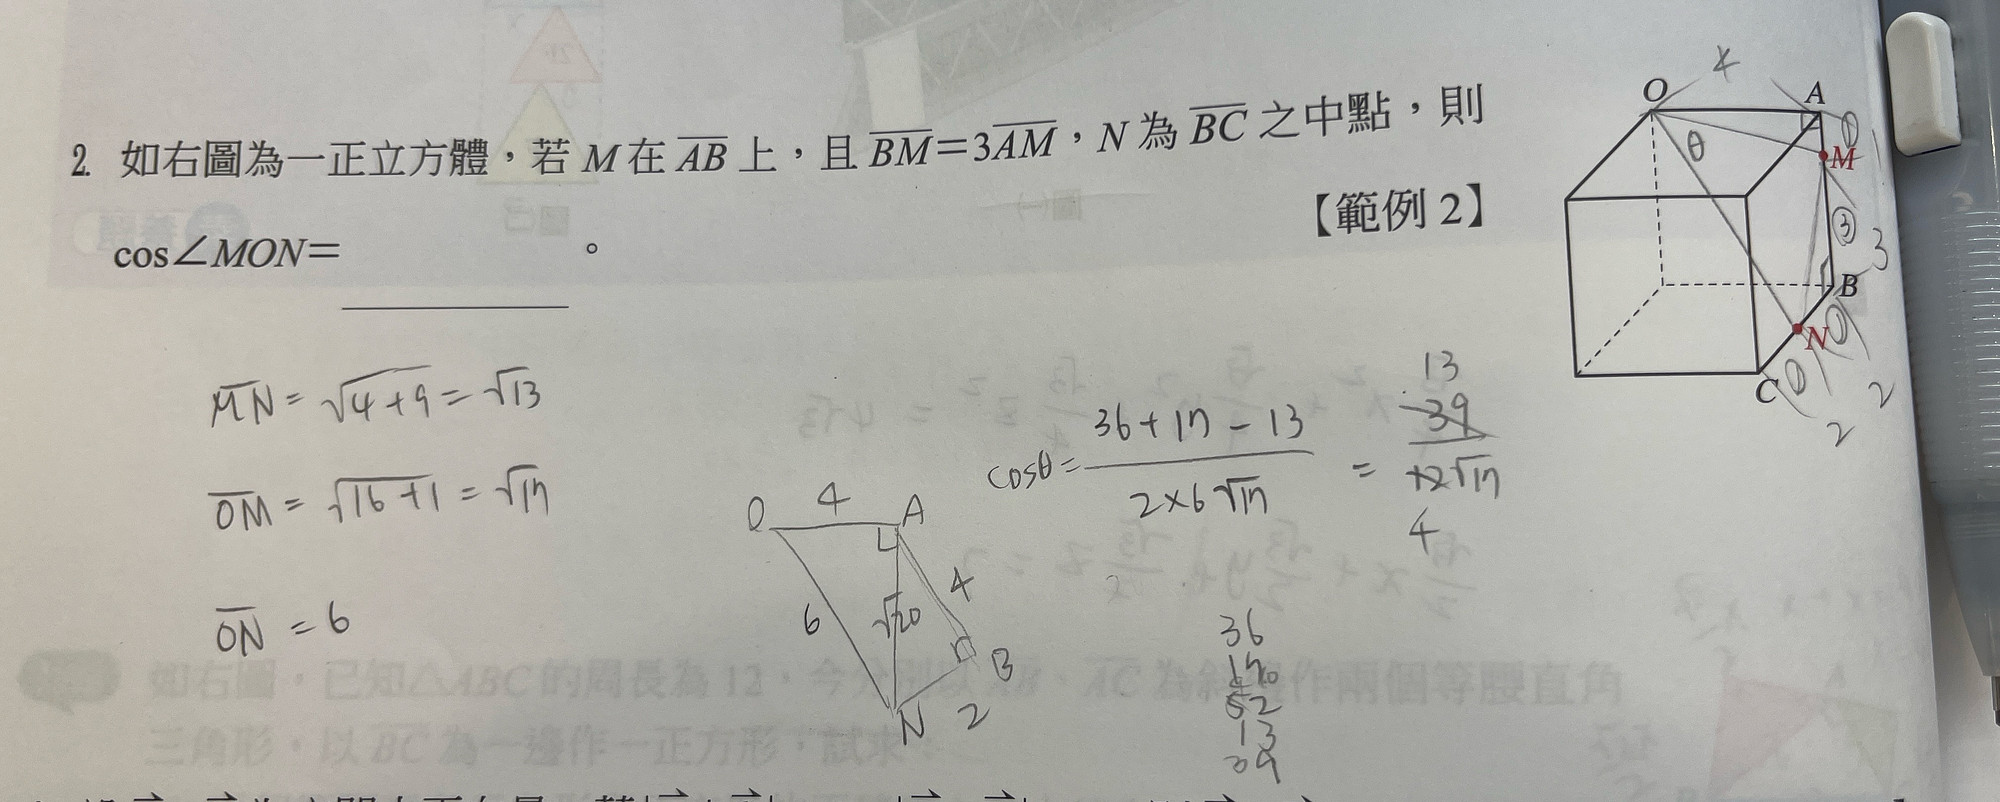 2. 如右圖為一正立方體，若 M 在 AB 上，且 BM=3AM，N 為 BC 之中點，則
【範例 2】
cos∠MON= 。
O
4
A
①
1
θ
M
③
3
B
①
N
①
2
C
2
MN = √4+9 = √13
OM = √16+1 = √17
ON = 6
O 4 A
4
6
√20
B
N 2
cosθ = 36+17-13 / 2×6√17 = 39 / 12√17
13
4
36
17
13
39
如右圖，已知△ABC的周長為12，今分別以AB、AC為斜邊作兩個等腰直角
三角形，以BC為一邊作一正方形，試求：